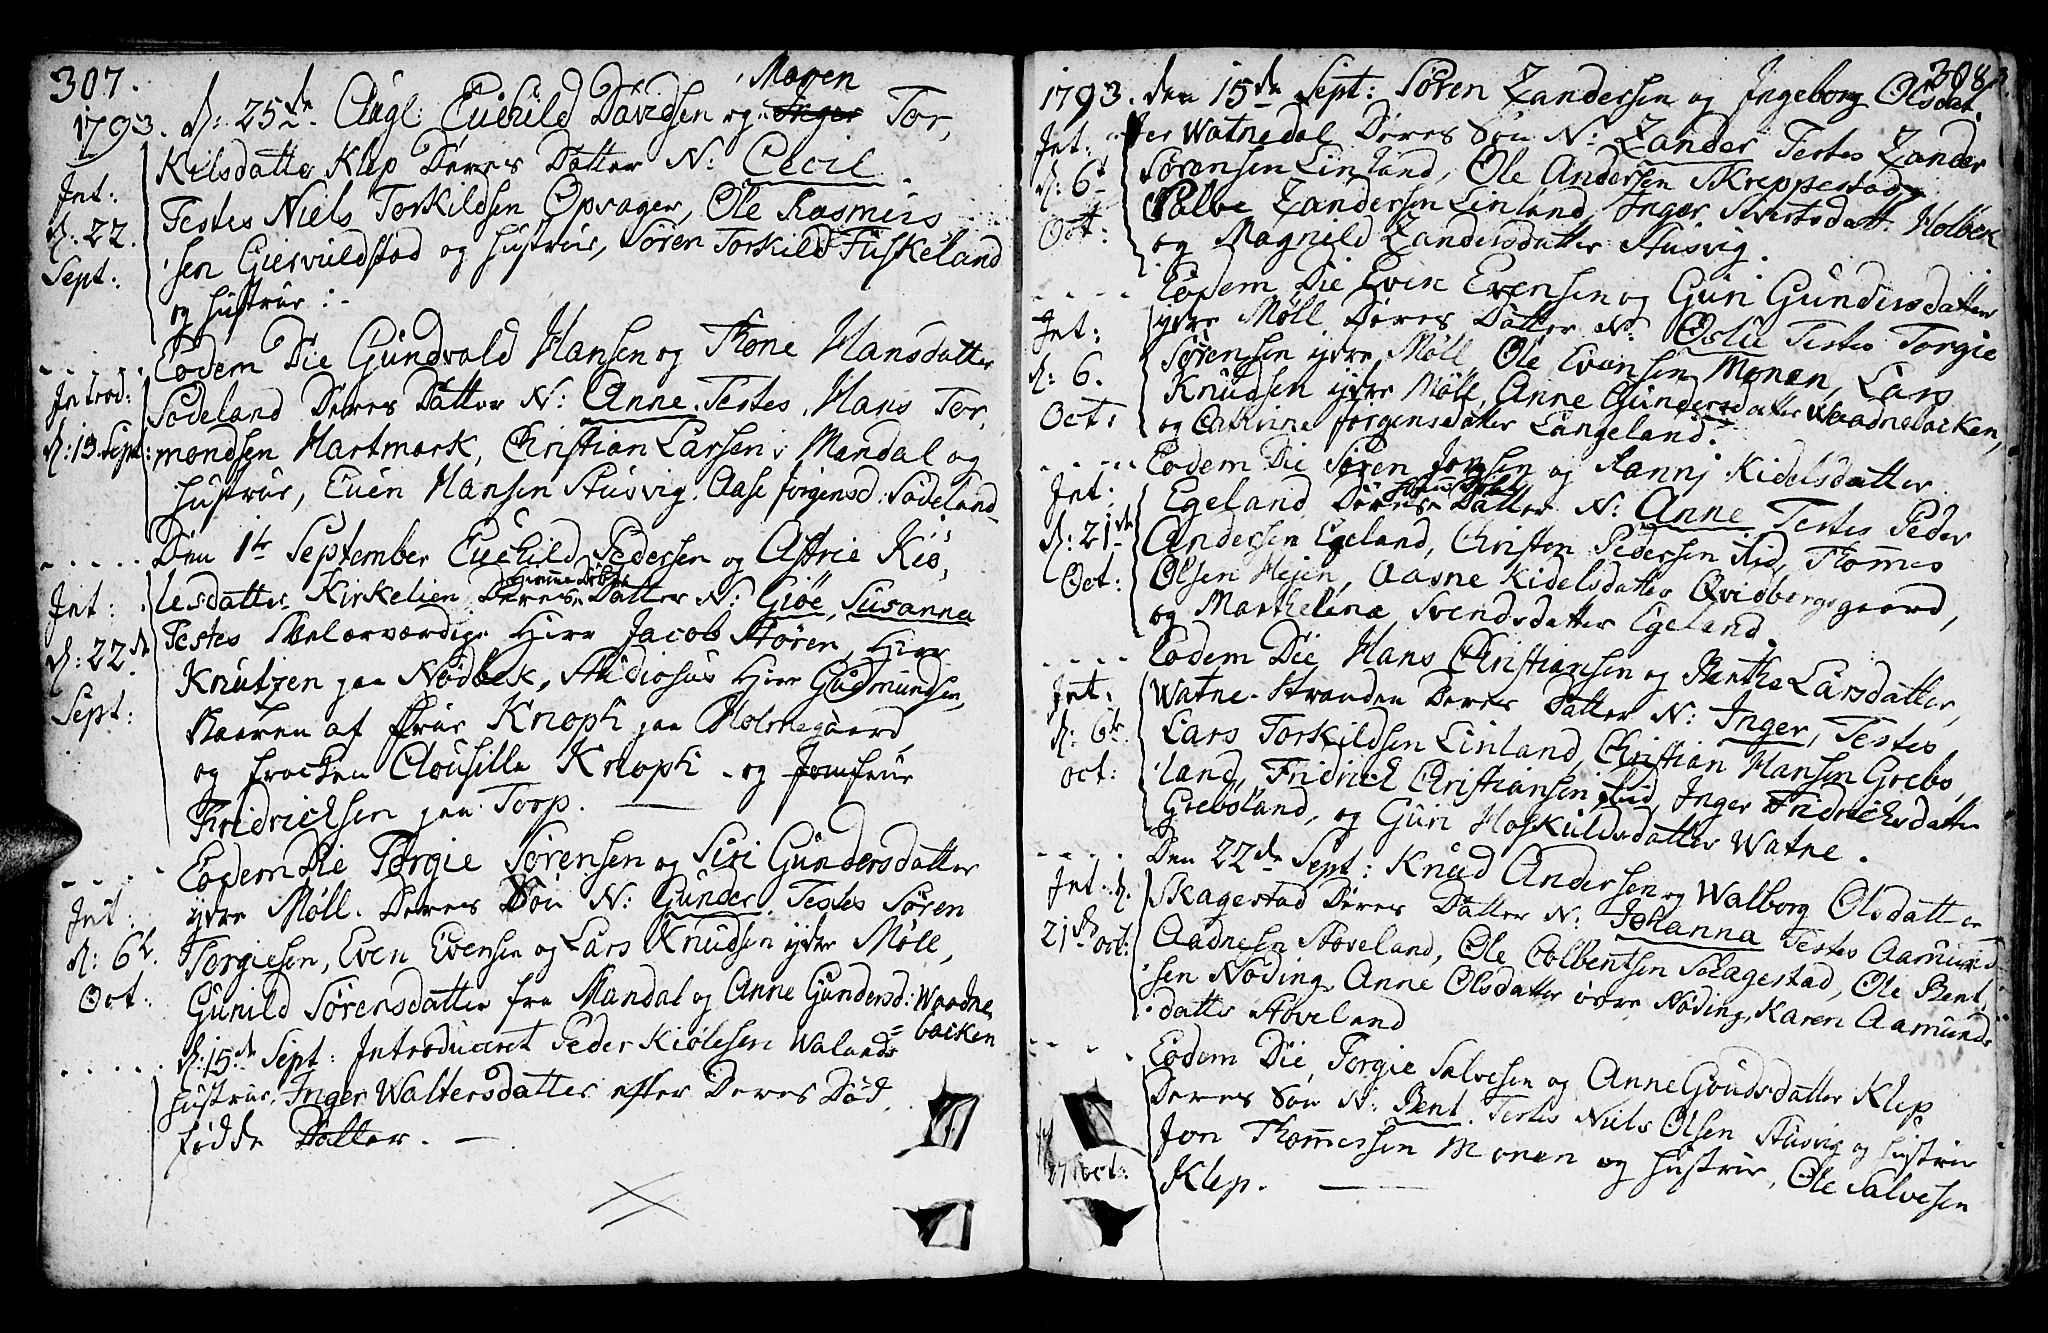 307.
1793. d: 25de Aug: Euchild Davidsen og Maren Inger Tor,
Kilsdatter Klep Deres Datter N: Cecil.
Int:
d: 22.
Sept:
Testes Niels Torkildsen Opsager, Ole Rasmus
sen Giervuldstad og Hustrue, Søren Torkild Fuskeland
og Hustrue :-
Eodem Die Gundvald Hansen og Thone Hansdatter
Introd:
d: 15 Sept:
Sodeland Deres Datter N: Anne. Testes, Hans Tor,
mondsen Hartmark, Christian Larsen i Mandal og
Hustrue, Even Hansen Stusvig. Aase Jørgensd: Sodeland
Den 1te September Euchild Pedersen og Astrie Kiø,
Int:
d: 22de
Sept:
lesdatter Kirkelien Deres hiemmedøbte Datter N: Giøe Susanna
Testes Velærværdige Herr Jacob Støren, Herr
Knutzen paa Nodbek, Studiosus Herr Gudmundsen,
Baaren af Frue Knoph paa Holmegaard
og Frøcken Clousille Knoph - og Jomfrue
Fridrichsen paa Torp.
Eodem Die Torgie Sørensen og Siri Gundersdatter
Int:
d: 6te
Oct:
ydre Møll. Deres Søn N: Gunder. Testes Søren
Torgiesen, Even Evensen og Lars Knudsen ydre Møll,
Gunild Sørensdatter fra Mandal og Anne Gundersd: Waadne,
backen
d: 15de Sept: Introduceret Peder Kiølesen Walands
Hustrue, Inger Waltersdatter efter Deres Død,
fødde Datter. -
308.
1793. den 15de Sept: Søren Zandersen og Ingeborg Olsdat,
Int:
d: 6te
Oct:
ter Watnedal Deres Søn N: Zander Testes Zander
Sørensen Linland, Ole Andersen Skreppestad,
Salve Zandersen Linland, Inger Sivertsdatt: Holbek
og Magnild Zandersdatter Stusvig.
Eodem Die Even Evensen og Guri Gundersdatter
Int:
d: 6.
Oct:
ydre Møll Deres Datter N: Oslu Testes Torgie
Sørensen ydre Møll Ole Evensen Monen, Lars
Knudsen ydre Møll, Anne Gundersdatter Waadnebacken,
og Cathrine Jørgensdatter Langeland.
Eodem Die Søren Jonsen og Rannj Kidelsdatter
Int:
d: 21de
Oct:
Egeland Deres hiemmedøbt Datter N: Anne Testes Peder
Andersen Egeland, Christen Pedersen ibid, Thommes
Olsen Hejen, Aasne Kidelsdatter Qvidbergsgaard,
og Marthelena Svendsdatter Egeland.
Eodem Die Hans Christiansen og Benthe Larsdatter,
Int:
d: 6te
oct:
Watne-Stranden Deres Datter N: Inger, Testes
Lars Torkildsen Linland, Christian Hansen Grebs,
land, Fridrich Christiansen ibid, Inger Fridrichsdatter
Grebsland, og Guri Hoskuldsdatter Watne.
Den 22de Sept: Knud Andersen og Walborg Olsdatter
Int d.
21de oct:
Skagestad Deres Datter N: Johanna Testes Aamund
Aadnesen Støveland, Ole Colbentsen Skagestad, Ole Bent,
sen Noding, Anne Olsdatter øvre Noding, Karen Aamunds
datter Støveland
Eodem Die, Torgie Salvesen og Anne Goudsdatter Klep
Deres Søn N: Bent. Testes Niels Olsen Stusvig og Hustrue
Jon Thommessen Monen og Hustrue, Ole Salvesen
oct:
Klep.